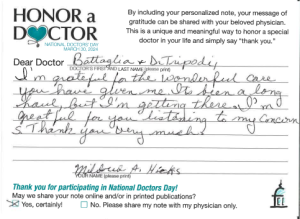 HONOR a
DOCTOR
NATIONAL DOCTORS' DAY
MARCH 30, 2024
By including your personalized note, your message of
gratitude can be shared with your beloved physician.
This is a unique and meaningful way to honor a special
doctor in your life and simply say "thank you."
Dear Doctor Battaglia & DiTripodi,
DOCTOR'S FIRST AND LAST NAME (please print)
I'm grateful for the wonderful care
you have given me. Its been a long
haul, but I'm getting there. I'm
grateful for you listening to my concern
s Thank you very much
Mildria A. Hicks
YOUR NAME (please print)
Thank you for participating in National Doctors Day!
May we share your note online and/or in printed publications?
Yes, certainly! No. Please share my note with my physician only.